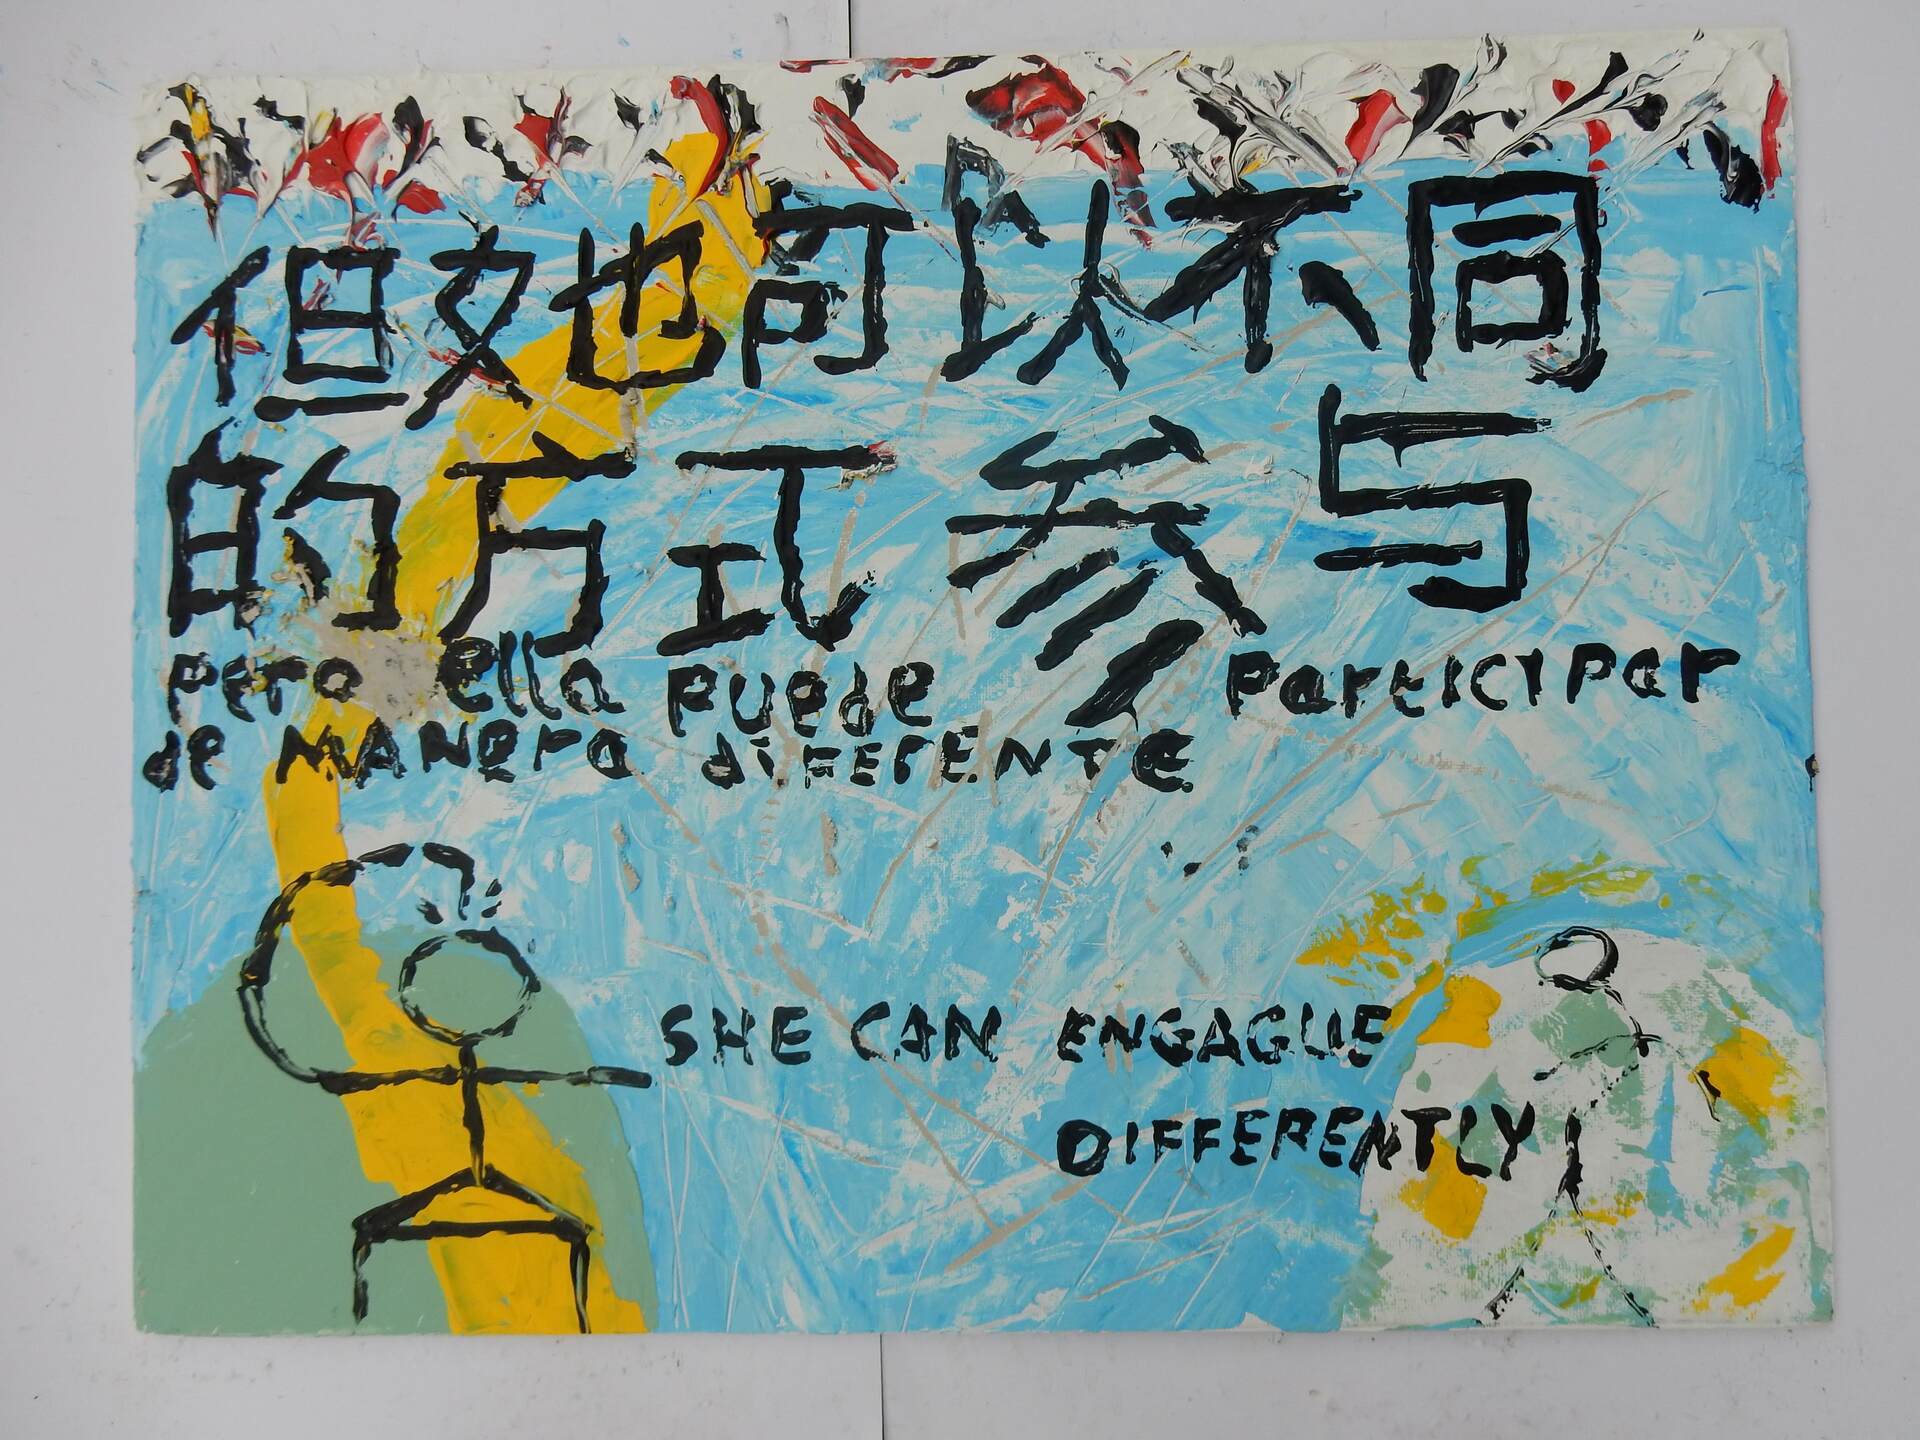 但她可以不同
的方式参与
Pero ella puede participar
de MANera diFERENTE
SHE CAN ENGAGUE
DIFFERENTLY